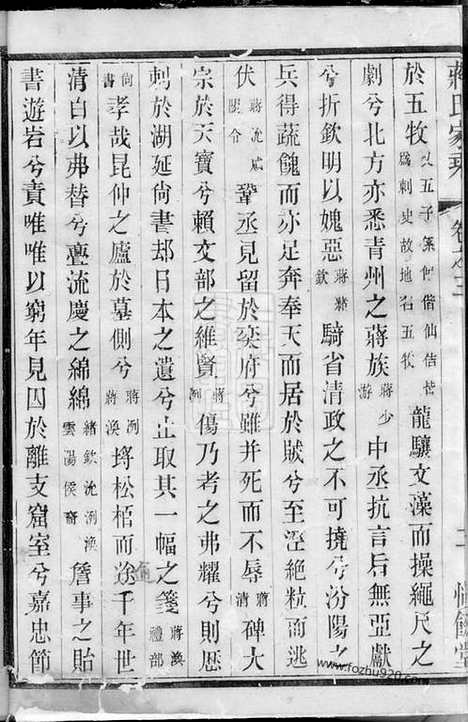 蔣氏家乘 卷之三
於五牧 父五子 偕仙佶 爲刺史故地名五牧 龍驤文藻而操繩尺之
劇兮北方亦悉青州之蔣族 蔣少游 中丞抗言后無亞獻
兮折欽明以媿惡 蔣欽 騎省清政之不可撓兮汾陽之
兵得蔬餽而亦足奔奉天而居於賊兮至澄絶粒而逃
伏 蔣沇 令 鞏丞見留於奕府兮雖并死而不辱 蔣清 碑大
宗於天寶兮賴文部之維賢 蔣洌 傷乃考之弗耀兮則歷
刺於湖延尙書却日本之遺兮止取其一幅之箋 蔣渙禮部
尙書 孝哉昆仲之廬於墓側兮 蔣洌蔣渙 松檟而涂千年世
清白以弗替兮亶流慶之綿綿 緒欽沇洌渙雲陽侯裔 詹事之貽
書遊岩兮責唯唯以窮年見囚於離支窟室兮嘉忠節
www.fozhu920.com